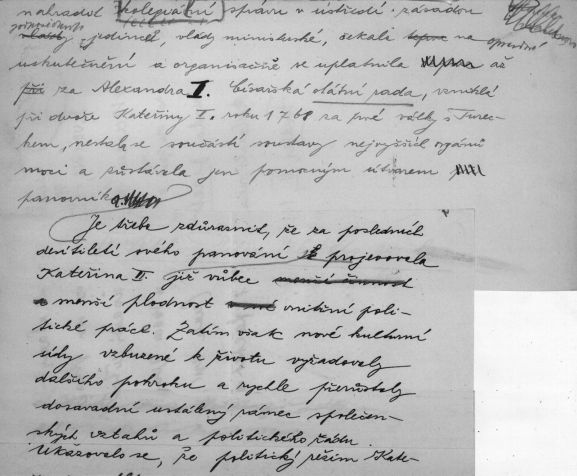 nahradit kolegiální správu v ústředí zásadou
jedincé, vlády ministerské, čekali na
uskutečnění a organisačně se uplatnila až
za Alexandra I. Císařská státní rada, vzniklá
při dvoře Kateřiny II. roku 1768 za prvé války s Turec-
kem, nestala se součástí soustavy nejvyšších orgánů
moci a zůstávala jen pomocným útvarem
panovníka.
Je třeba zdůraznit, že za posledních
desítiletí svého panování projevovala
Kateřina II. již vůbec menší činnost
a menší plodnost vnitřní poli-
tické práce. Zatím však nové kulturní
síly vzbuzené k životu vyžadovaly
dalšího pokroku a rychle přerůstaly
dosavadní ustálený rámec společen-
ských vztahů a politického řádu.
Ukazovalo se, že politický režim Kate-